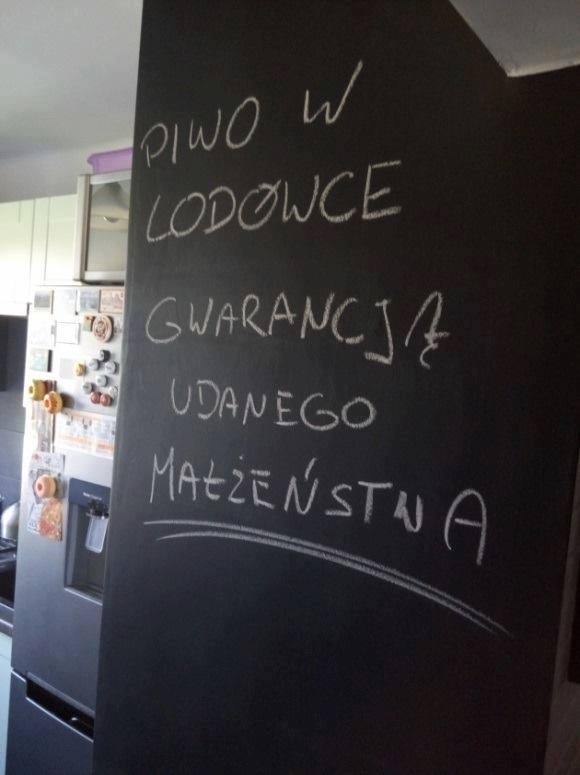 PIWO W
LODÓWCE
GWARANCJĄ
UDANEGO
MAŁŻEŃSTWA